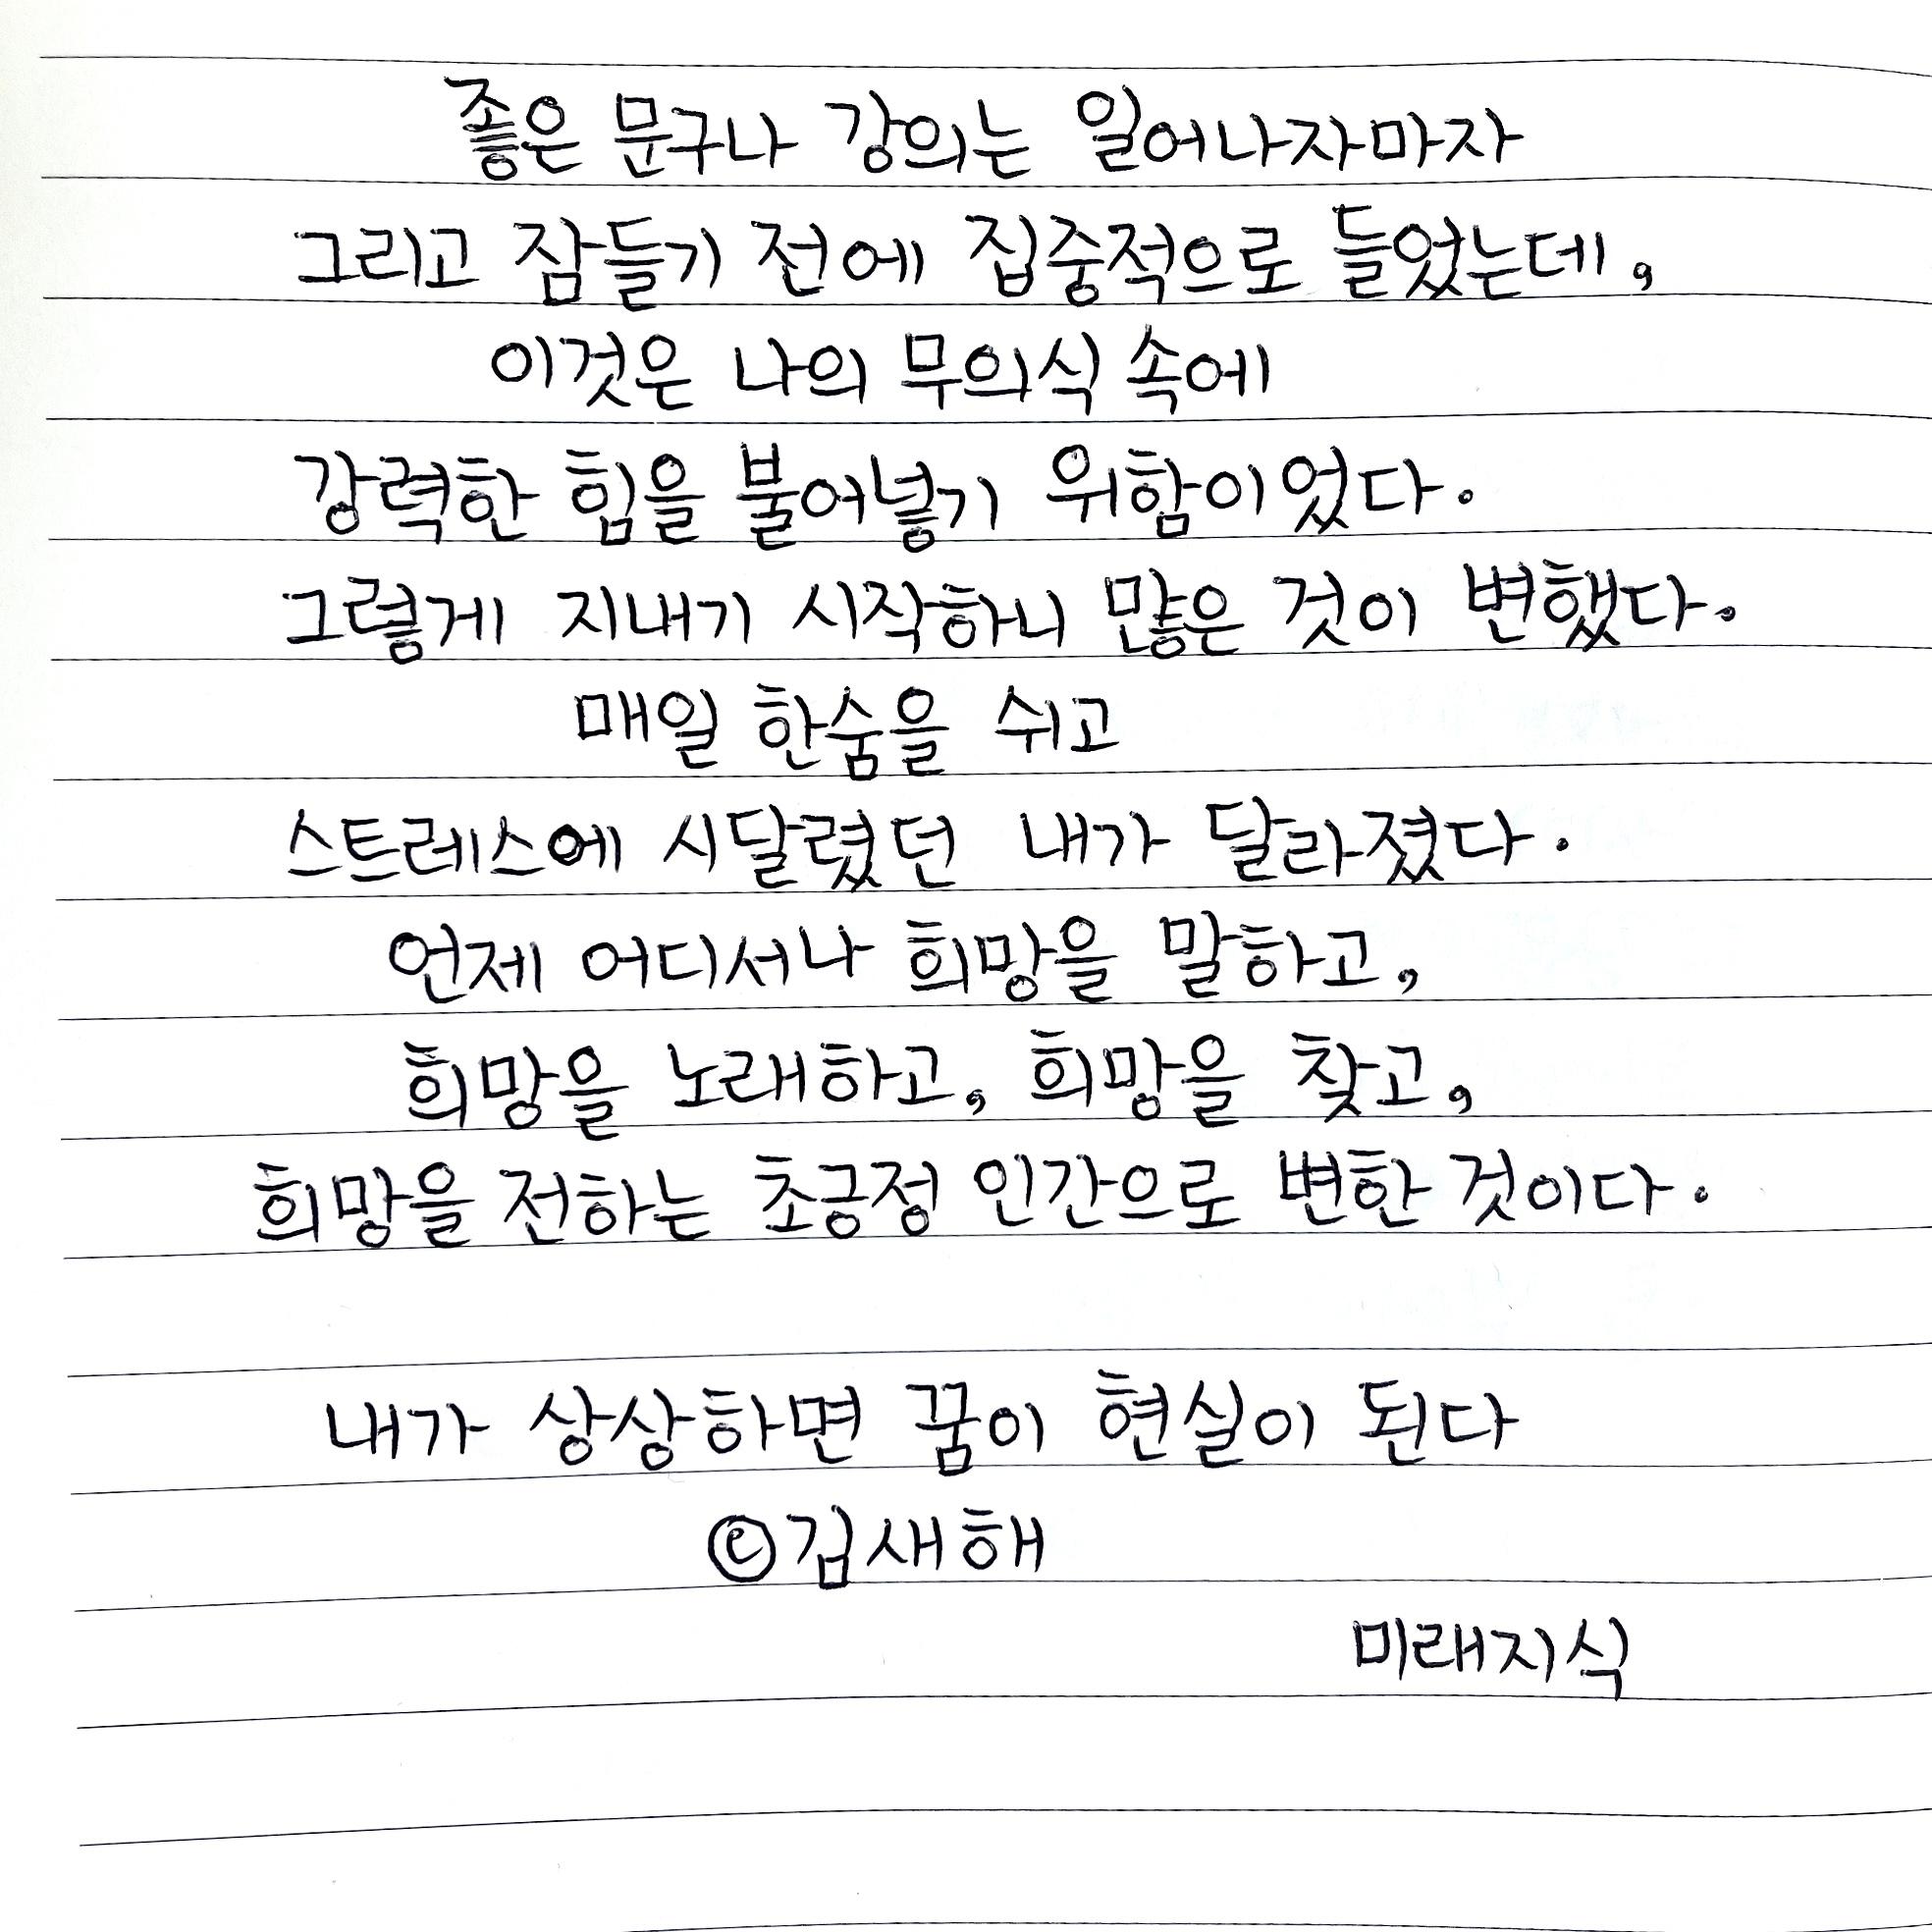 좋은 문구나 강의는 일어나자마자
그리고 잠들기 전에 집중적으로 들었는데,
이것은 나의 무의식 속에
강력한 힘을 불어넣기 위함이었다.
그렇게 지내기 시작하니 많은 것이 변했다.
매일 한숨을 쉬고
스트레스에 시달렸던 내가 달라졌다.
언제 어디서나 희망을 말하고,
희망을 노래하고, 희망을 찾고,
희망을 전하는 초긍정 인간으로 변한 것이다.
내가 상상하면 꿈이 현실이 된다
©김새해
미래지식